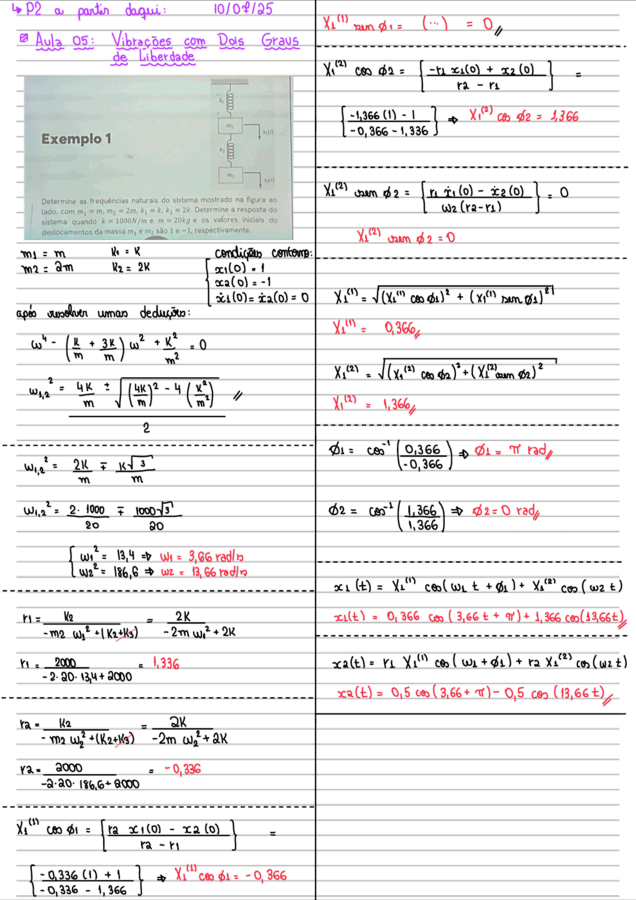 ↳ P2 a partir daqui: 10/07/25
Aula 05: Vibrações com Dois Graus
de Liberdade
Exemplo 1
k₁
m₁
x₁(t)
k₂
m₂
x₂(t)
Determine as frequências naturais do sistema mostrado na figura ao
lado, com m₁ = m, m₂ = 2m, k₁ = k, k₂ = 2k. Determine a resposta do
sistema quando k = 1000N/m e m = 20kg e os valores iniciais do
deslocamentos da massa m₁ e m₂ são 1 e −1, respectivamente.
m1 = m K1 = K condições contorno:
m2 = 2m K2 = 2K
x1(0) = 1
x2(0) = -1
ẋ1(0) = ẋ2(0) = 0
após resolver umas deduções:
ω⁴ - (K/m + 3K/m) ω² + K²/m² = 0
ω1,2² = (4K/m ± √((4K/m)² - 4 (K²/m²))) / 2 //
ω1,2² = 2K/m ∓ K√3/m
ω1,2² = 2·1000/20 ∓ 1000√3/20
ω1² = 13,4 ⇒ ω1 = 3,66 rad/s
ω2² = 186,6 ⇒ ω2 = 13,66 rad/s
r1 = K2/(-m2 ω1² + (K2+K3)) = 2K/(-2m ω1² + 2K)
r1 = 2000/(-2·20·13,4 + 2000) = 1,336
r2 = K2/(-m2 ω2² + (K2+K3)) = 2K/(-2m ω2² + 2K)
r2 = 2000/(-2·20·186,6 + 2000) = -0,336
X1⁽¹⁾ cos ϕ1 = [(r2 x1(0) - x2(0))/(r2 - r1)] =
[(-0,336 (1) + 1)/(-0,336 - 1,366)] ⇒ X1⁽¹⁾ cos ϕ1 = -0,366
X1⁽¹⁾ sen ϕ1 = (···) = 0//
X1⁽²⁾ cos ϕ2 = [(-r1 x1(0) + x2(0))/(r2 - r1)] =
[(-1,366 (1) - 1)/(-0,366 - 1,336)] ⇒ X1⁽²⁾ cos ϕ2 = 1,366
X1⁽²⁾ sen ϕ2 = [(r1 ẋ1(0) - ẋ2(0))/(ω2 (r2-r1))] = 0
X1⁽²⁾ sen ϕ2 = 0
X1⁽¹⁾ = √((X1⁽¹⁾ cos ϕ1)² + (X1⁽¹⁾ sen ϕ1)²)
X1⁽¹⁾ = 0,366//
X1⁽²⁾ = √((X1⁽²⁾ cos ϕ2)² + (X1⁽²⁾ sen ϕ2)²)
X1⁽²⁾ = 1,366//
ϕ1 = cos⁻¹ (0,366/-0,366) ⇒ ϕ1 = π rad//
ϕ2 = cos⁻¹ (1,366/1,366) ⇒ ϕ2 = 0 rad//
x1(t) = X1⁽¹⁾ cos(ω1 t + ϕ1) + X1⁽²⁾ cos(ω2 t)
x1(t) = 0,366 cos(3,66 t + π) + 1,366 cos(13,66t)//
x2(t) = r1 X1⁽¹⁾ cos(ω1 + ϕ1) + r2 X1⁽²⁾ cos(ω2 t)
x2(t) = 0,5 cos(3,66 + π) - 0,5 cos(13,66 t)//